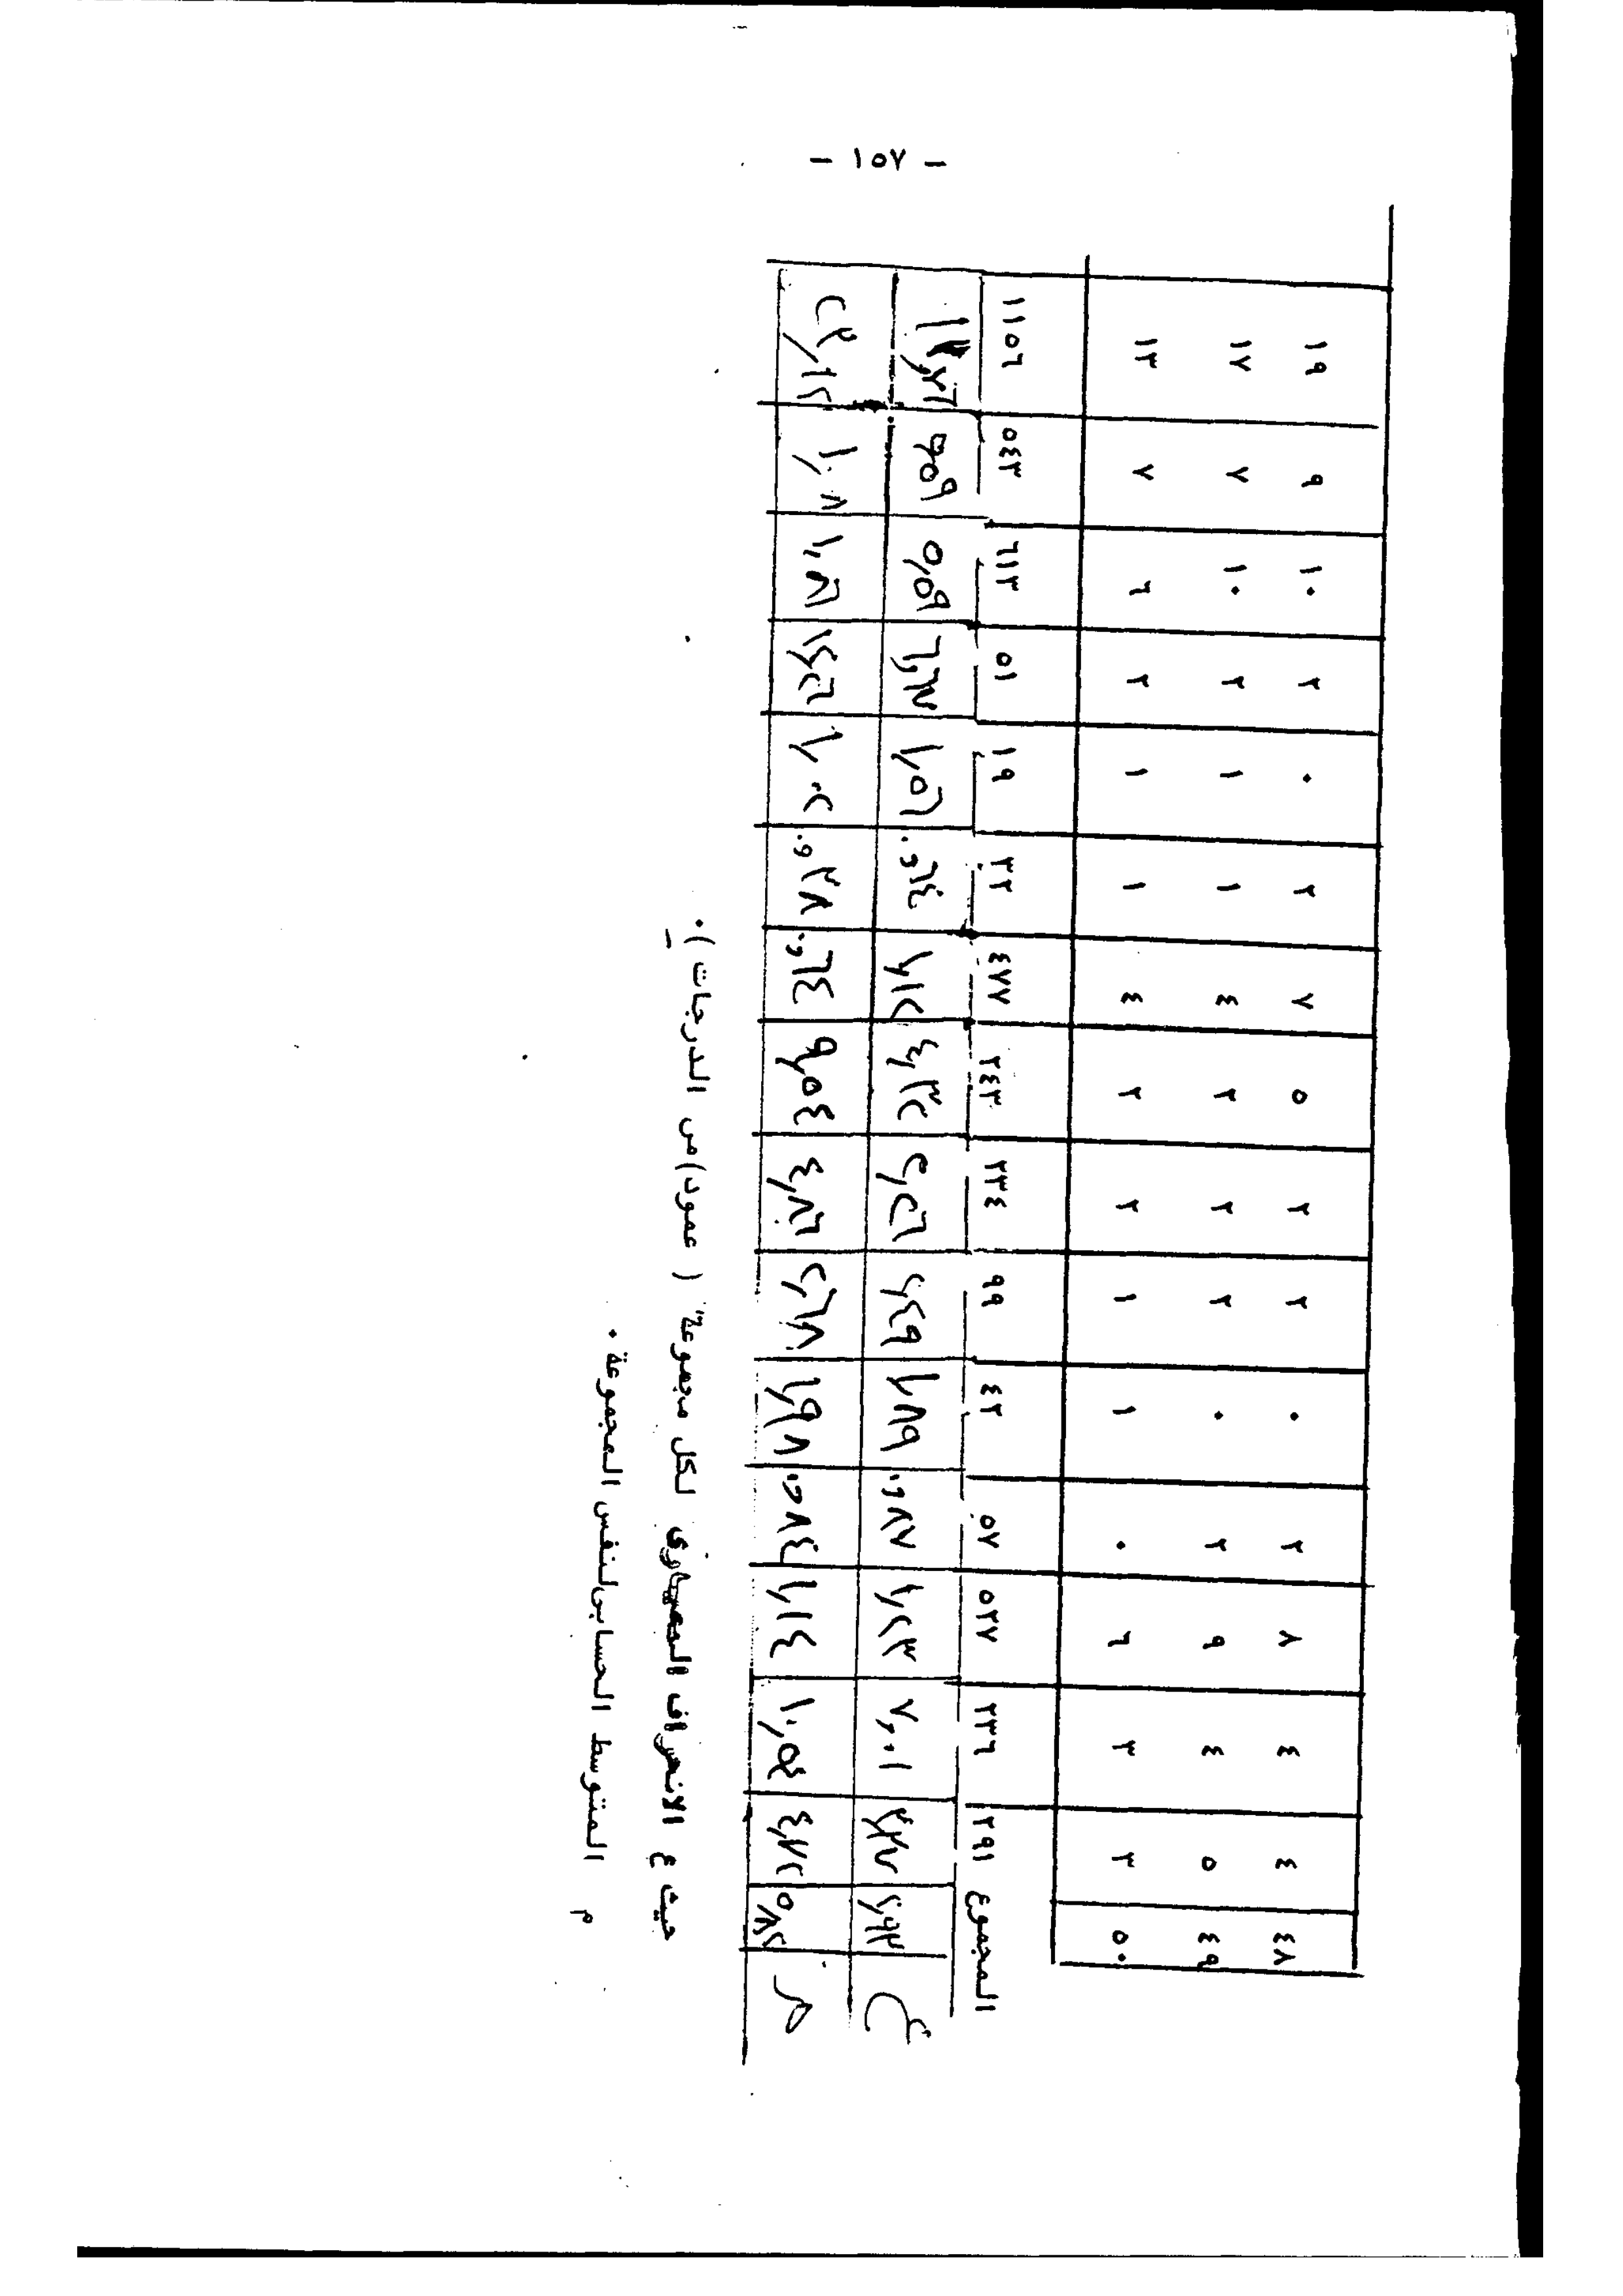 - ١٥٧ -
٤٨ ٤ ٤ ٨ ٢ ٠ ٢ ٢ ٥ ٧ ٢ ٠ ٢ ١٠ ٩ ١٩
٤٩ ٥ ٤ ٩ ٢ ٠ ٢ ٢ ٢ ٤ ١ ١ ٢ ١٠ ٧ ١٧
٥٠ ٣ ٣ ٦ ٠ ١ ١ ٢ ٢ ٤ ١ ١ ٢ ٦ ٧ ١٣
المجموع ٢٩١ ٢٣٦ ٥٢٧ ٥٧ ٤٢ ٩٩ ٢٣٤ ٢٤٣ ٤٧٧ ٣٢ ١٩ ٥١ ٦١٣ ٥٤٣ ١١٥٦
ع ٢,٩٣ ٧,٠١ ١,٢٣ ٠,٨٧ ١,٨٩ ٢,٤٩ ٢,٢٦ ٤,٣٢ ١,١٢ ٠,٦٤ ١,٥٦ ٦,٦٣ ٥,٥٩ ١١,٢٦
م ٥,٨٢ ٤,٧٢ ١٠,٥٤ ١,١٤ ٠,٨٤ ١,٩٨ ٢,٦٨ ٤,٨٦ ٩,٥٤ ٠,٦٤ ٠,٣٨ ١,٠٢ ٢٣,١٢
حيث ع الانحراف المعيارى لكل مجموعة ( عمود) من الدرجات ) .
م المتوسط الحسابى لنفس المجموعة .